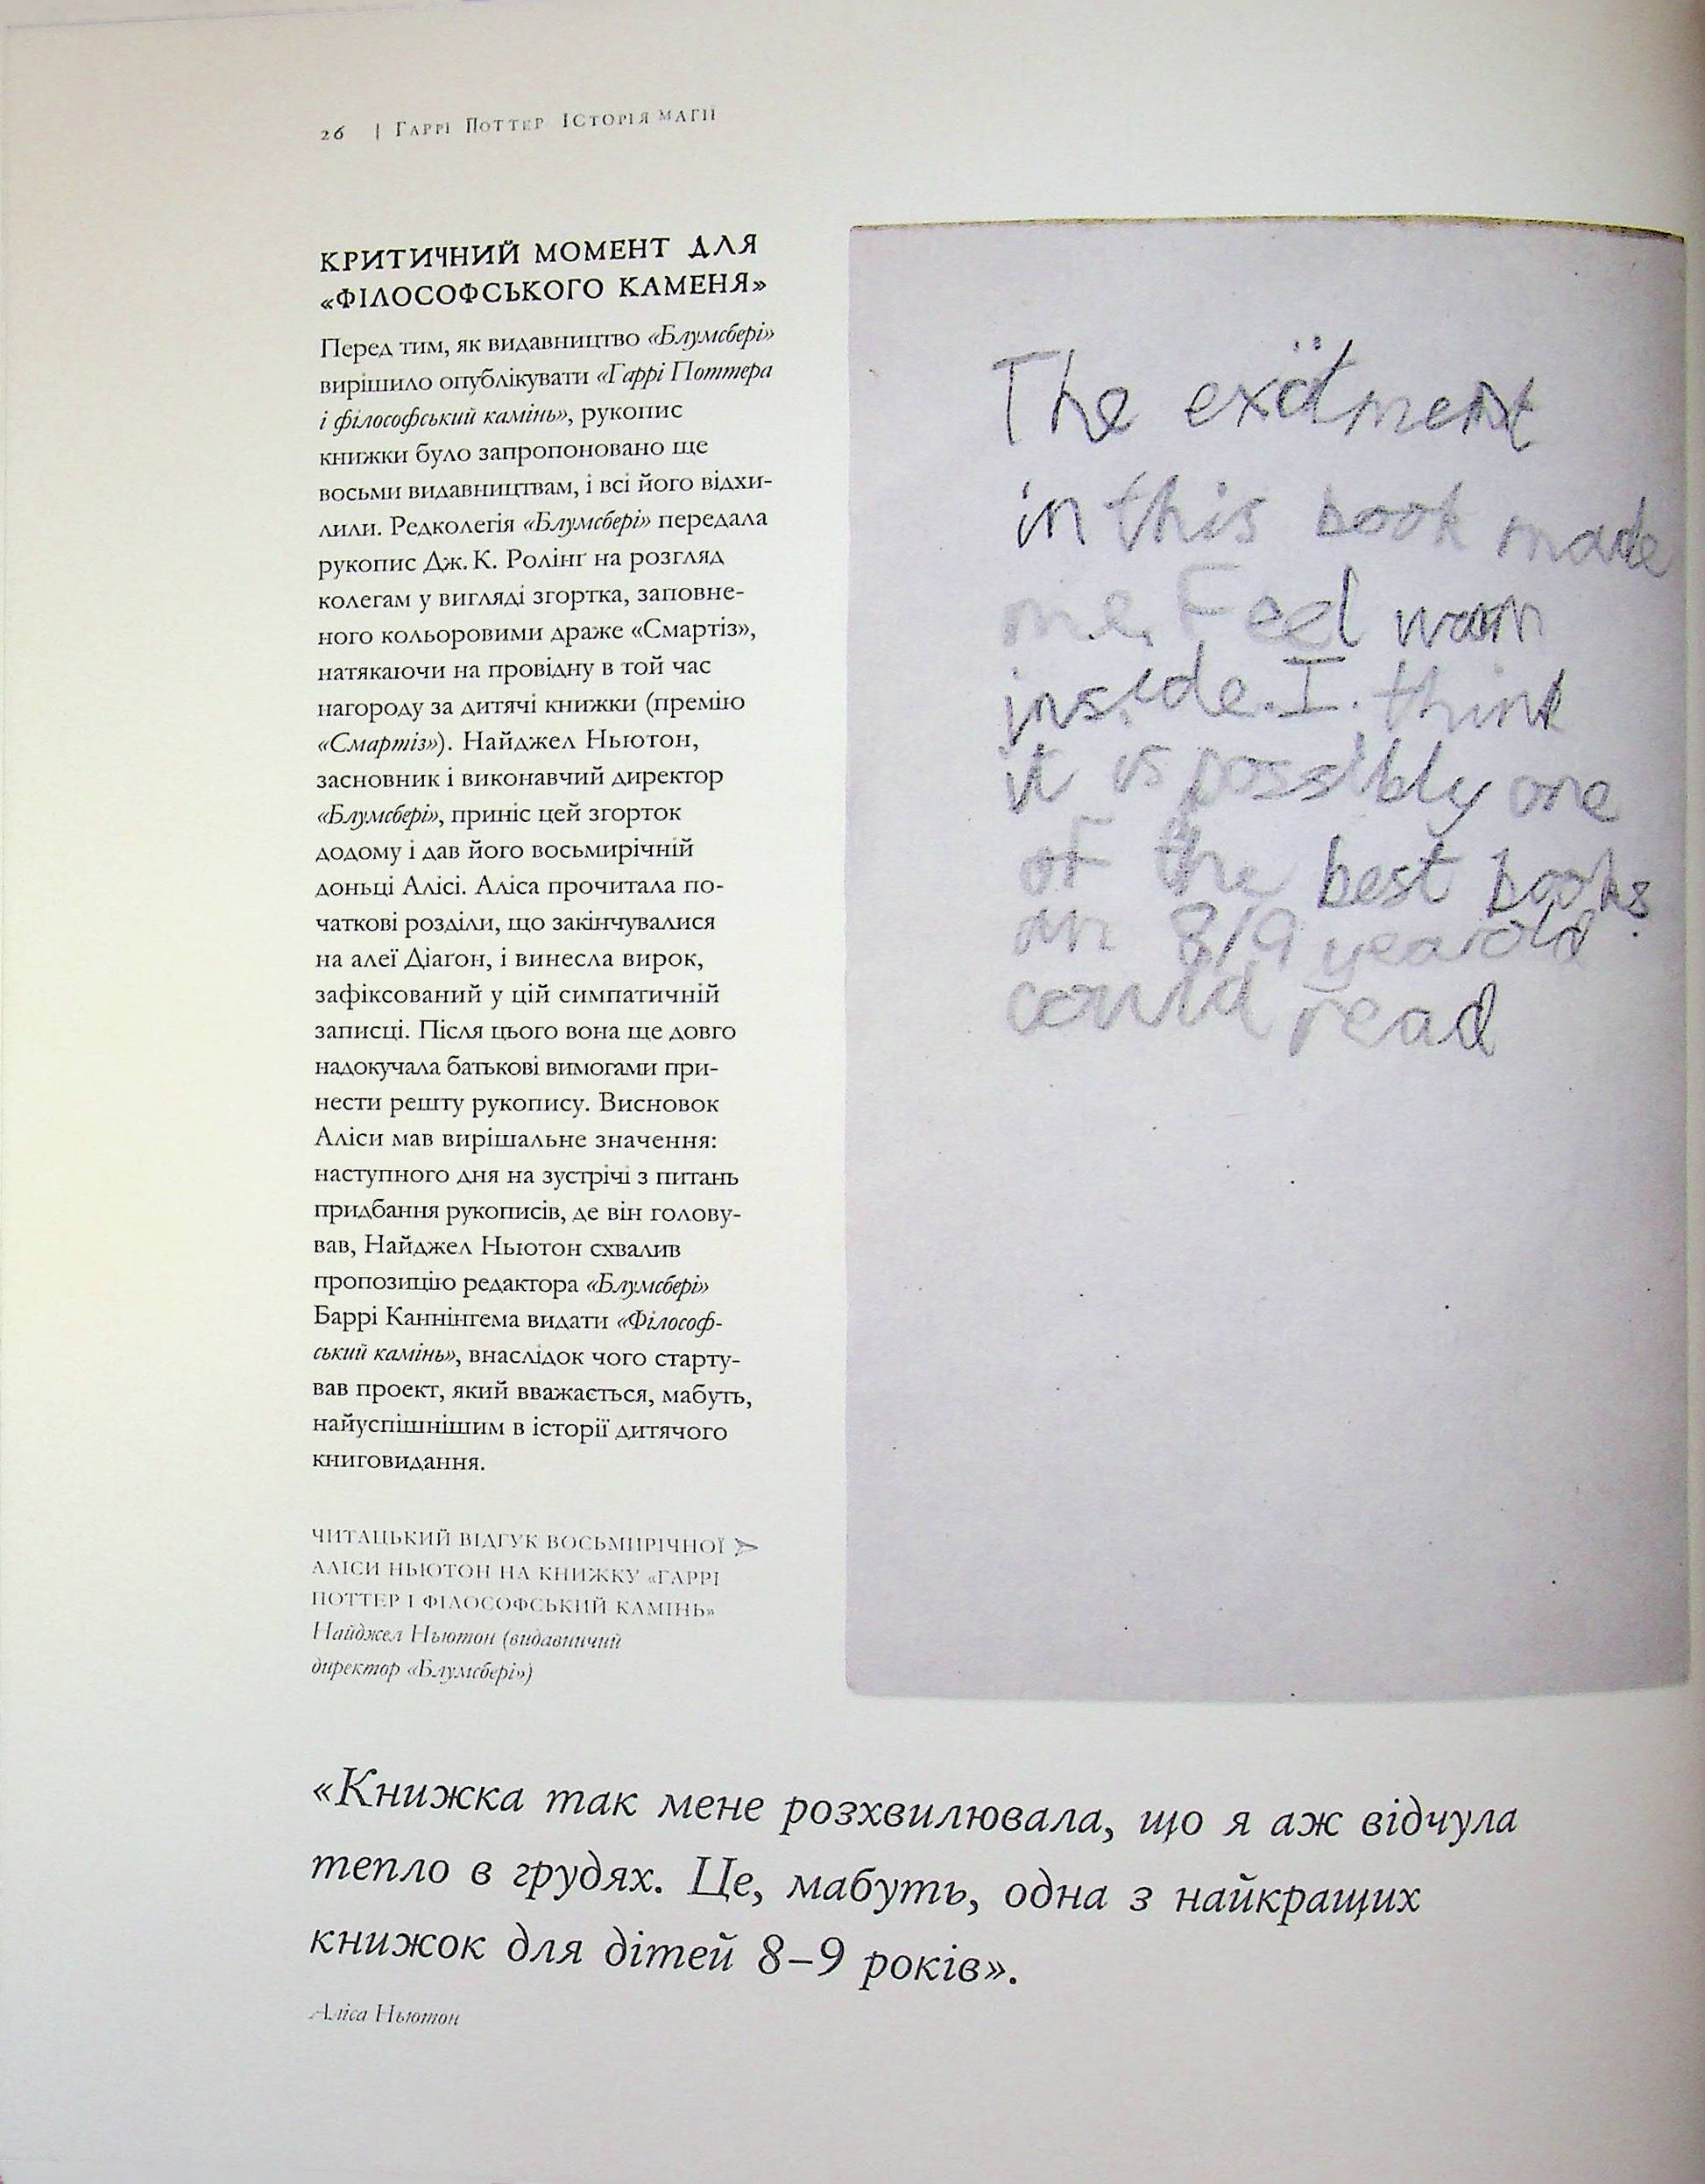 26 | Гаррі Поттер Історія магії
КРИТИЧНИЙ МОМЕНТ ДЛЯ
«ФІЛОСОФСЬКОГО КАМЕНЯ»
Перед тим, як видавництво «Блумсбері»
вирішило опублікувати «Гаррі Поттера
і філософський камінь», рукопис
книжки було запропоновано ще
восьми видавництвам, і всі його відхи-
лили. Редколегія «Блумсбері» передала
рукопис Дж. К. Ролінґ на розгляд
колегам у вигляді згортка, заповне-
ного кольоровими драже «Смартіз»,
натякаючи на провідну в той час
нагороду за дитячі книжки (премію
«Смартіз»). Найджел Ньютон,
засновник і виконавчий директор
«Блумсбері», приніс цей згорток
додому і дав його восьмирічній
доньці Алісі. Аліса прочитала по-
чаткові розділи, що закінчувалися
на алеї Діаґон, і винесла вирок,
зафіксований у цій симпатичній
записці. Після цього вона ще довго
надокучала батькові вимогами при-
нести решту рукопису. Висновок
Аліси мав вирішальне значення:
наступного дня на зустрічі з питань
придбання рукописів, де він голову-
вав, Найджел Ньютон схвалив
пропозицію редактора «Блумсбері»
Баррі Каннінгема видати «Філософ-
ський камінь», внаслідок чого старту-
вав проект, який вважається, мабуть,
найуспішнішим в історії дитячого
книговидання.
ЧИТАЦЬКИЙ ВІДГУК ВОСЬМИРІЧНОЇ
АЛІСИ НЬЮТОН НА КНИЖКУ «ГАРРІ
ПОТТЕР І ФІЛОСОФСЬКИЙ КАМІНЬ»
Найджел Ньютон (видавничий
директор «Блумсбері»)
The exitment
in this book made
me Feel warm
inside. I think
it is possibly one
of the best books
an 8/9 year old
could read
«Книжка так мене розхвилювала, що я аж відчула
тепло в грудях. Це, мабуть, одна з найкращих
книжок для дітей 8–9 років».
Аліса Ньютон